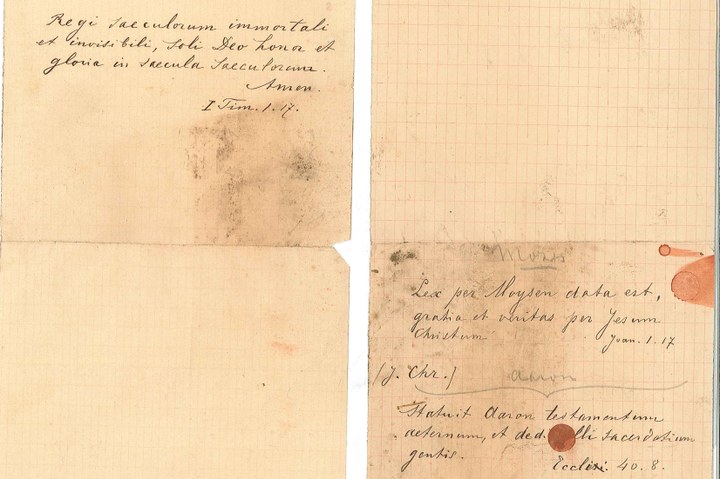 Regi saeculorum immortali
et invisibili, soli Deo honor et
gloria in saecula saeculorum.
Amen.
I Tim. 1. 17.
Moses
Lex per Moysen data est,
gratia et veritas per Jesum
Christum
Joan. 1. 17
(J. Chr.)
Aaron
Statuit Aaron testamentum
aeternum, et ded. illi sacerdotium
gentis.
40. 8.